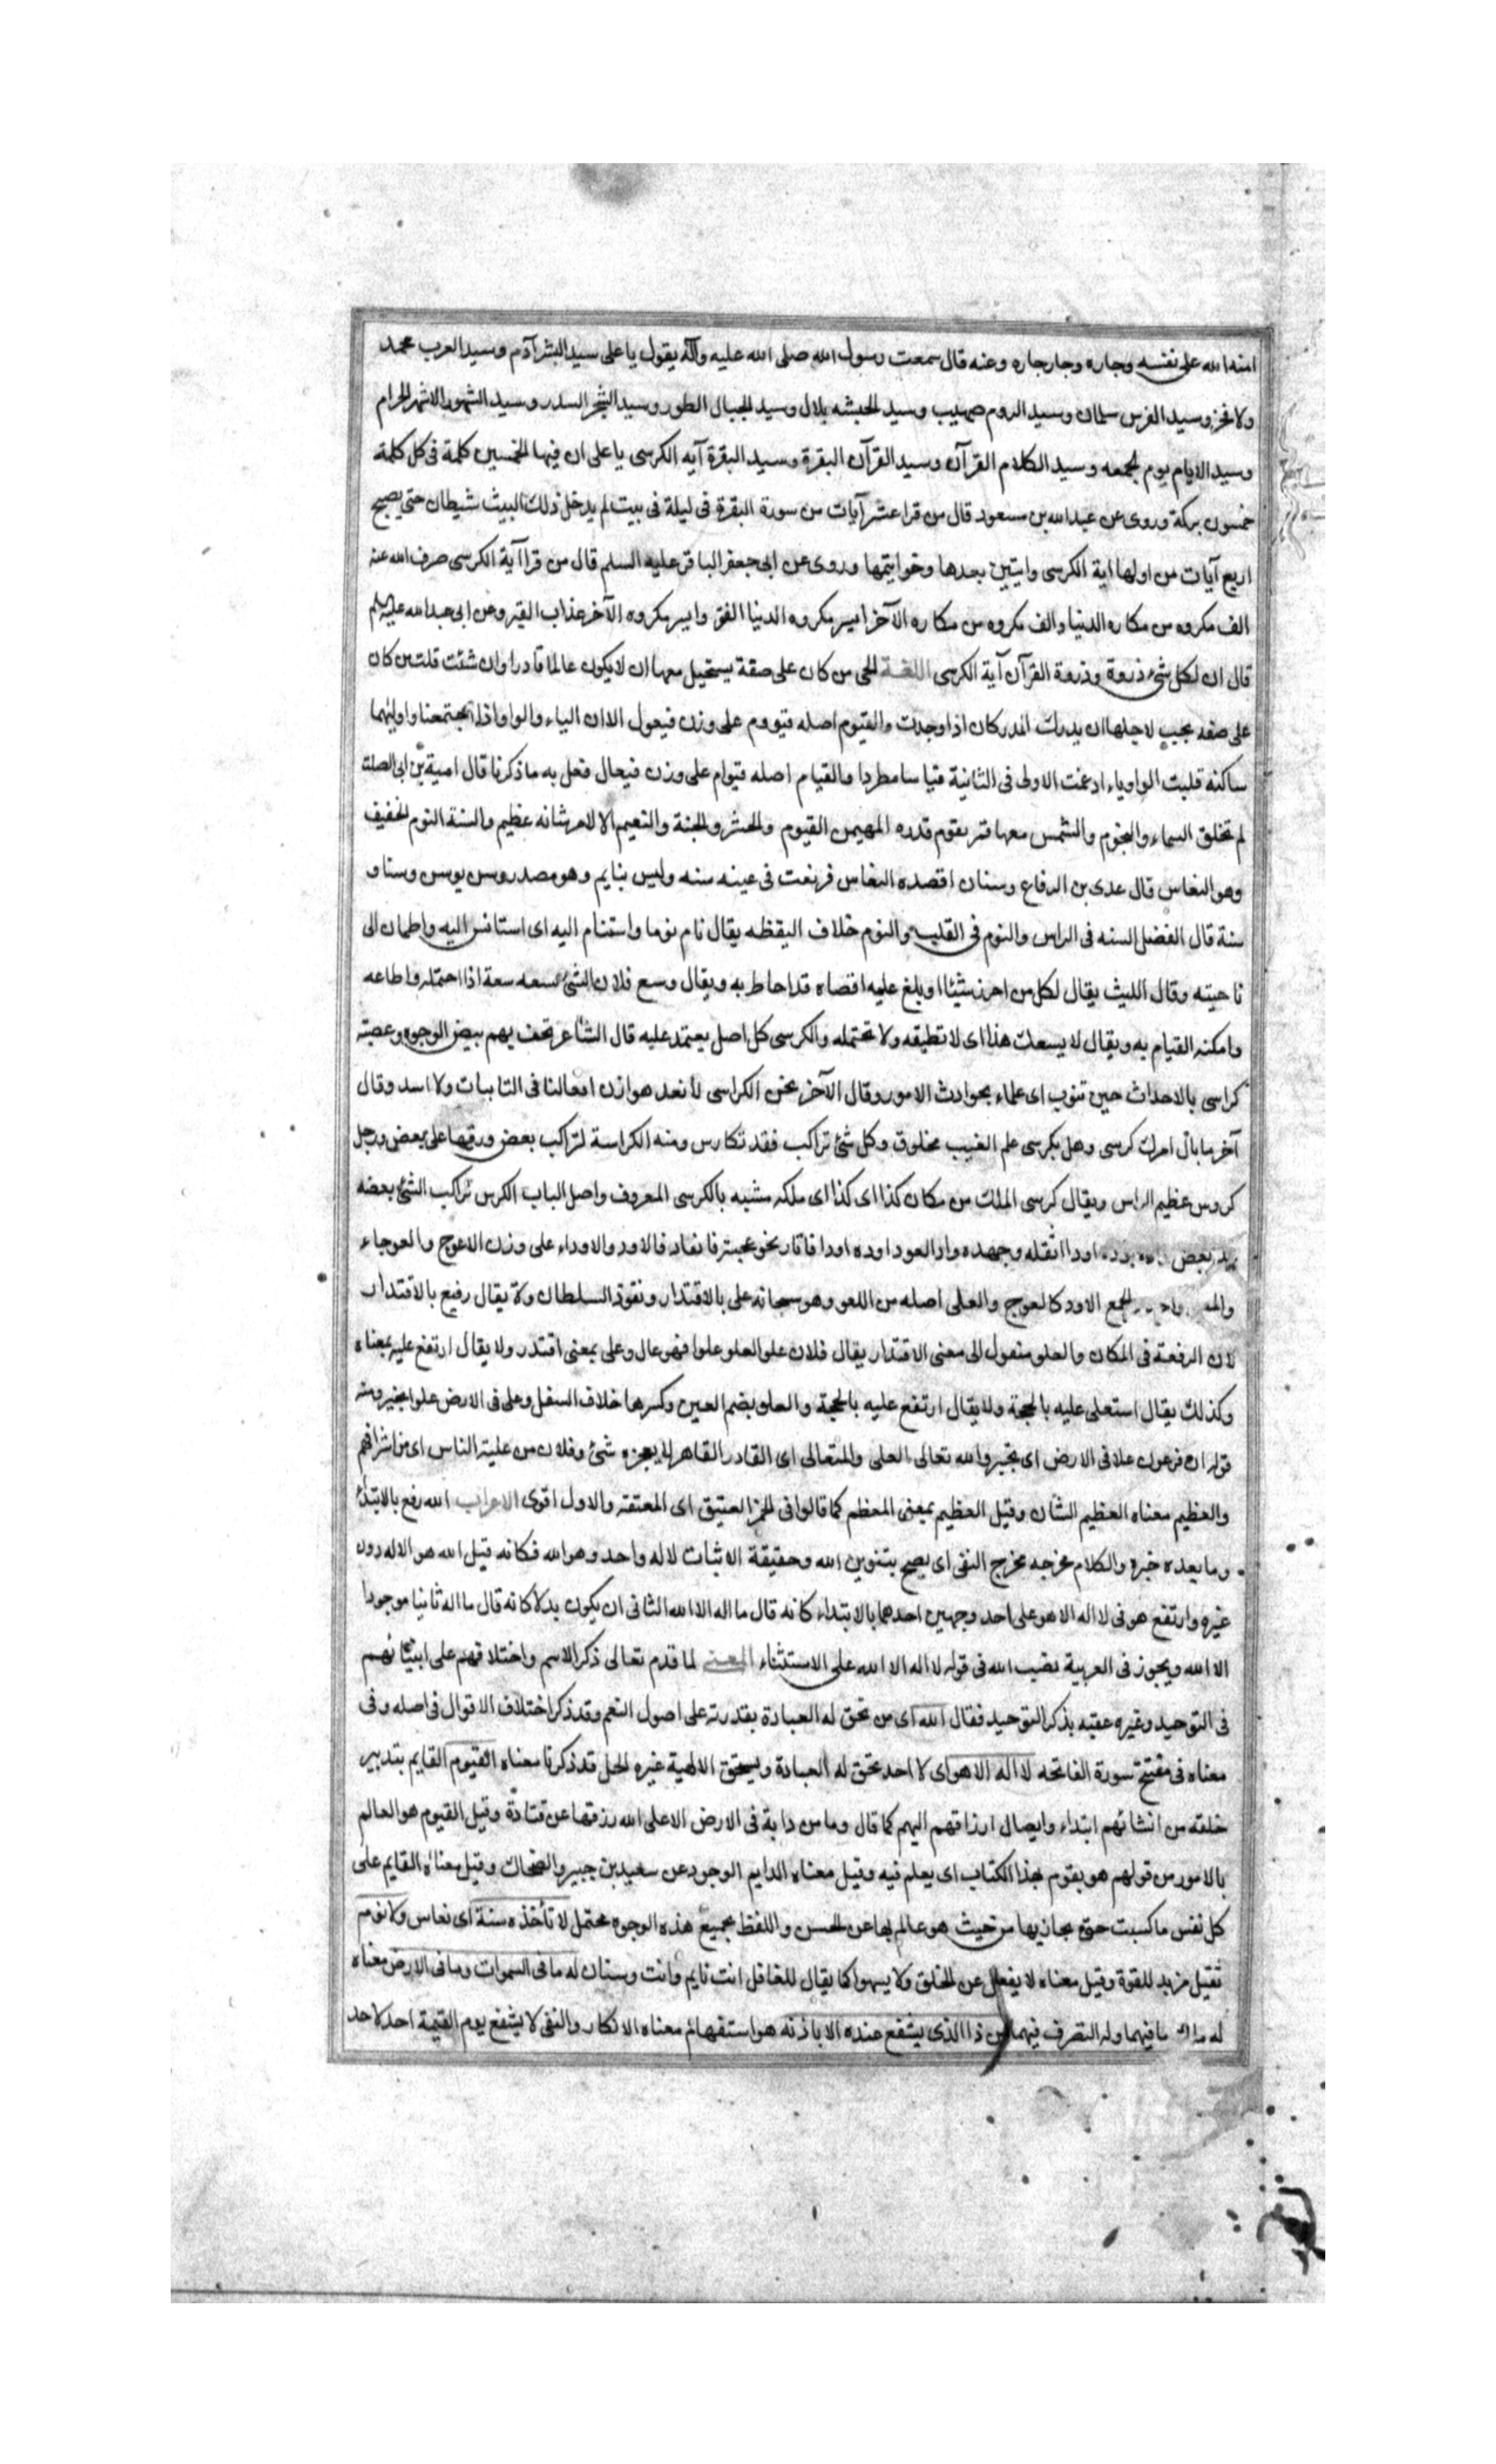 امنه الله على نفسه وجاره وجار جاره وعنه قال سمعت رسول الله صلى الله عليه وآله يقول يا على سيد البشر آدم وسيد العرب محمد
ولا فخر وسيد الفرس سلمان وسيد الروم صهيب وسيد الحبشه بلال وسيد الجبال الطور وسيد الشجر السدر وسيد الشهور الاشهر الحرام
وسيد الايام يوم الجمعه وسيد الكلام القرآن وسيد القرآن البقرة وسيد البقرة آيه الكرسى يا على ان فيها لخمسين كلمة فى كل كلمة
خمسون بركة وروى عن عبدالله بن مسعود قال من قرا عشر آيات من سورة البقرة فى ليلة فى بيت لم يدخل ذلك البيت شيطان حتى يصبح
اربع آيات من اولها اية الكرسى وايتين بعدها وخواتيمها وروى عن ابى جعفر الباقر عليه السلم قال من قرا آية الكرسى صرف الله عنه
الف مكروه من مكاره الدنيا والف مكروه من مكاره الآخرا يسر مكروه الدنيا الفقر وايسر مكروه الآخر عذاب القبر وعن ابى عبدالله عليه السلم
قال ان لكل شئ ذروة وذروة القرآن آية الكرسى اللغة الحى من كان على صفة يستحيل معها ان لا يكون عالما قادرا وان شئت قلت من كان
على صفه يجب لاجلها ان يدرك المدركان اذا وجدت والقيوم اصله قيووم على وزن فيعول الا ان الياء والواو اذا اجتمعنا واوليهما
ساكنه قلبت الواو ياء ادغمت الاولى فى الثانية قياسا مطردا والقيام اصله قيوام على وزن فيعال فعل به ما ذكرنا قال امية بن ابى الصلت
لم تخلق السماء والنجوم والشمس معها قمر يقوم قدره المهيمن القيوم والحشر والجنة والنعيم الا لامر شانه عظيم والسنة النوم الخفيف
وهو النعاس قال عدى بن الرفاع وسنان اقصده النعاس فرنقت فى عينه سنه وليس بنايم وهو مصدر وسن يوسن وسنا و
سنة قال المفضل السنه فى الراس والنوم فى القلب والنوم خلاف اليقظه يقال نام نوما واستنام اليه اى استانس اليه واطمان الى
ناحيته وقال الليث يقال لكل من احرز شيئا او بلغ علمه اقصاه قد احاط به ويقال وسع فلان الشئ يسعه سعة اذا احتمله واطاعه
وامكنه القيام به ويقال لا يسعك هذا اى لا تطيقه ولا تحتمله والكرسى كل اصل يعتمد عليه قال الشاعر تحف بهم بيض الوجوه وعصبة
كراسى بالاحداث حين تنوب اى علماء بحوادث الامور وقال الآخر نحن الكراسى لا تعد هوازن افعالنا فى النايبات ولا اسد وقال
آخر ما بال امرك كرسى وهل بكرسى علم الغيب مخلوق وكل شئ تراكب فقد تكارس ومنه الكراسة لتراكب بعض ورقها على بعض ورجل
كروس عظيم الراس ويقال كرسى الملك من مكان كذا اى كذا اى ملكه مشبه بالكرسى المعروف واصل الباب الكرس تراكب الشئ بعضه
بعض اودا اثقله وجهده واد العود اوده اودا فاناد نحو عجته فانعاد فالاود والاوداء على وزن الاعوج والعوجاء
الجمع الاود كالعوج والعلى اصله من العلو وهو سبحانه على بالاقتدار ونفوذ السلطان ولا يقال رفيع بالاقتدار
لان الرفعة فى المكان والعلو منقول الى معنى الاقتدار يقال فلان علو العلو علوا فهو عال وعلى بمعنى اقتدر ولا يقال ارتفع عليه بمعناه
وكذلك يقال استعلى عليه بالحجة ولا يقال ارتفع عليه بالحجة والعلو بضم العين وكسرها خلاف السفل وعلى فى الارض علوا تجبر ومنه
قوله ان فرعون علا فى الارض اى تجبر والله تعالى العلى والمتعالى اى القادر القاهر لا يعجزه شئ وفلان من علية الناس اى من اشرافهم
والعظيم معناه العظيم الشان وقيل العظيم بمعنى المعظم كما قالوا فى الخمر العتيق اى المعتقه والاول اقوى الاعراب الله رفع بالابتداء
وما بعده خبره والكلام مخرجه مخرج النفى اى يصح بتنوين الله وحقيقة الاثبات لاله واحد وهو الله فكانه قيل الله هو الاله دون
غيره وارتفع هو فى لا اله الا هو على احد وجهين احدهما بالابتداء كانه قال ما اله الا الله الثانى ان يكون بدلا كانه قال ما اله ثانيا موجودا
الا الله ويجوز فى العربية نصب الله فى قوله لا اله الا الله على الاستثناء المعنى لما قدم تعالى ذكر الامم واختلافهم على انبيائهم
فى التوحيد وغيره عقبه بذكر التوحيد فقال الله اى من تحق له العبادة بقدرته على اصول النعم وقد ذكر اختلاف الاقوال فى اصله وفى
معناه فى مفتتح سورة الفاتحه لا اله الا هو اى لا احد تحق له العبادة ويستحق الالهية غيره الحى قد ذكرنا معناه القيوم القايم بتدبير
خلقه من انشائهم ابتداء وايصال ارزاقهم اليهم كما قال وما من دابة فى الارض الا على الله رزقها عن قتادة وقيل القيوم هو العالم
بالامور من قولهم هو يقوم بهذا الكتاب اى يعلم فيه وقيل معناه الدايم الوجود عن سعيد بن جبير والضحاك وقيل معناه القايم على
كل نفس ما كسبت حتى يجازيها من حيث هو عالم بها عن الحسن واللفظ بجميع هذه الوجوه محتمل لا تأخذه سنة اى نعاس ولا نوم
ثقيل مزيد للقوة وقيل معناه لا يفعل عن الخلق ولا يسهوا كما يقال للغافل انت نايم وانت وسنان له ما فى السموات وما فى الارض معناه
له ملك ما فيهما وله التصرف فيهما من ذا الذى يشفع عنده الا باذنه هو استفهام معناه الانكار والنفى لا يشفع يوم القيمة احد لاحد